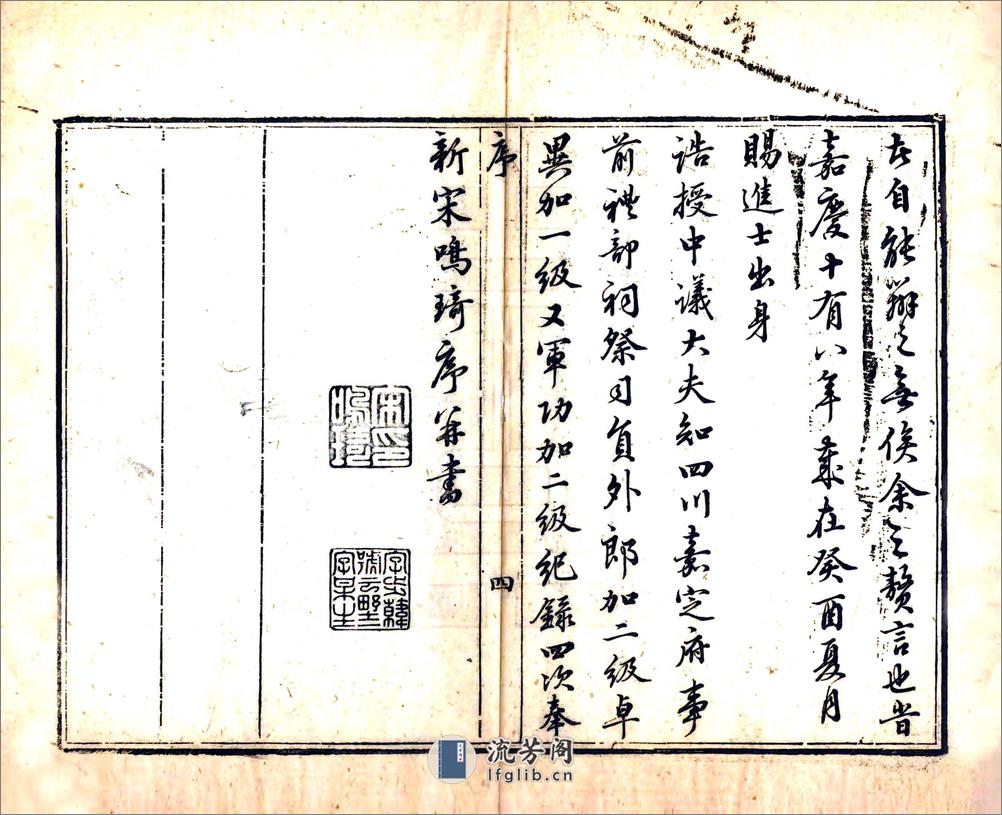 者自能辨之無俟余之贅言也旹
嘉慶十有八年歲在癸酉夏月
賜進士出身
誥授中議大夫知四川嘉定府事
前禮部祠祭司員外郎加二級卓
異加一級又軍功加二級紀錄四次奉
序
四
新宋鳴琦序并書
宋印
鳴琦
字步韓
號云墅
流芳阁
lfglib.cn